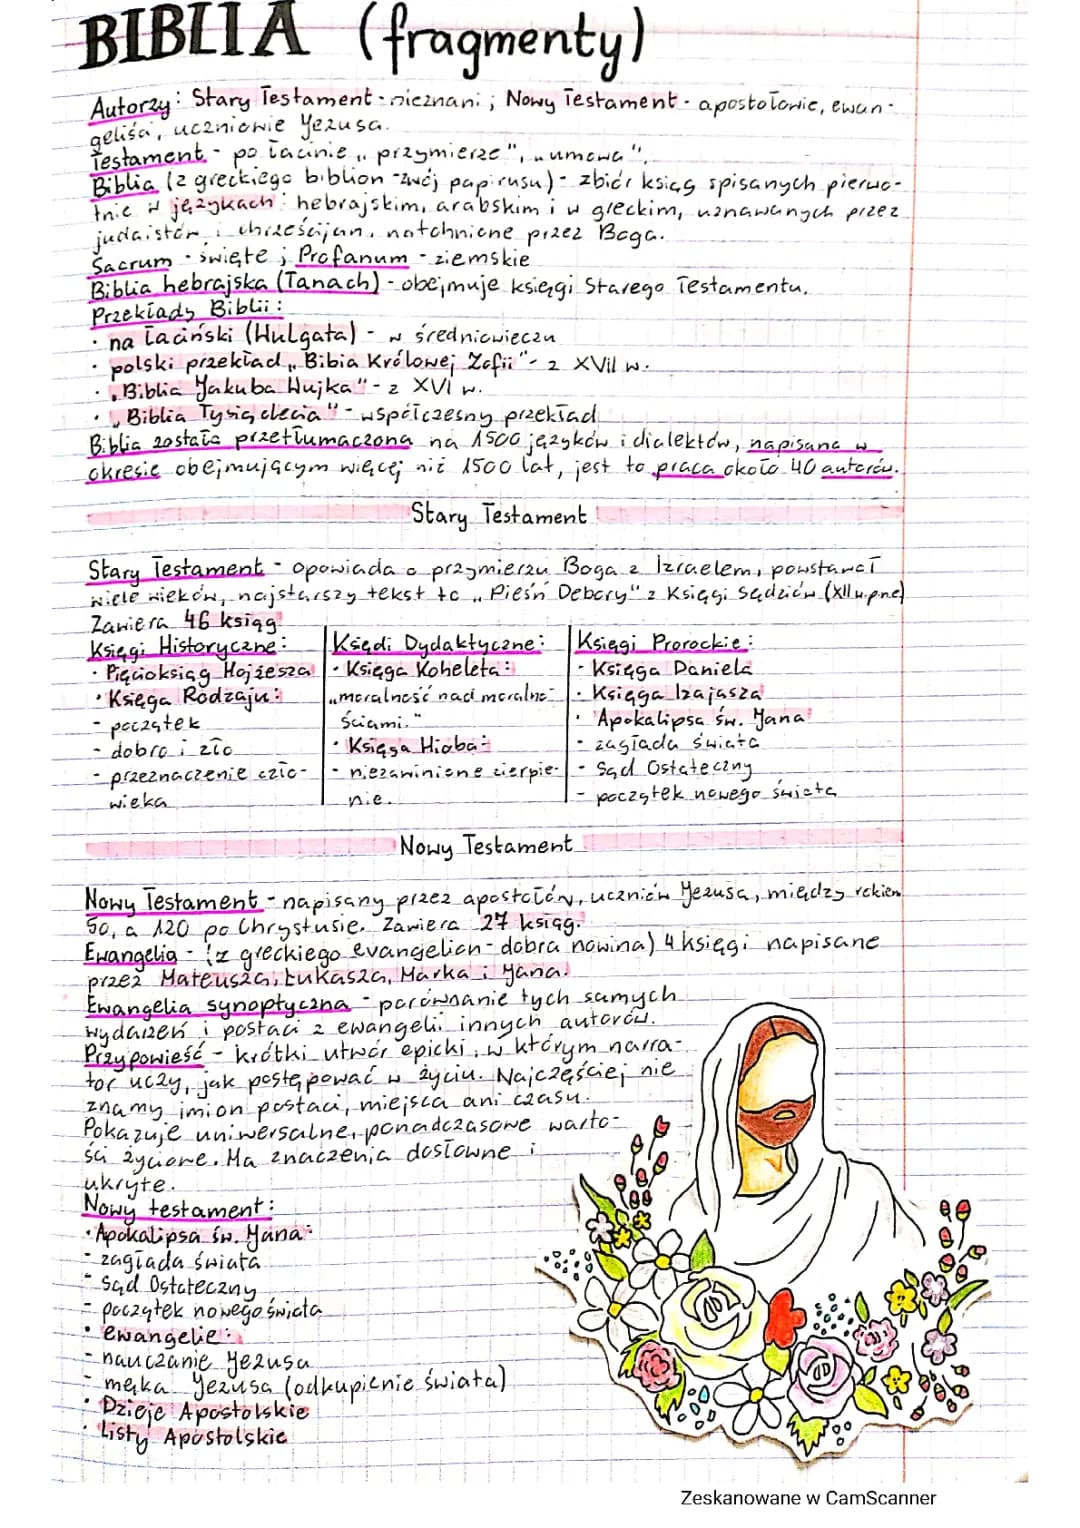 BIBLIA (fragmenty)
Autorzy: Stary Testament - nieznani; Nowy Testament - apostołowie, ewan-
geliśa, uczniowie Jezusa.
Testament - po łacinie "przymierze", "umowa".
Biblia (z greckiego biblion - zwój papirusu) - zbiór ksiąg spisanych pierwo-
tnie w językach: hebrajskim, arabskim i w greckim, uznawanych przez
judaistów i chrześcijan, natchnione przez Boga.
Sacrum - święte; Profanum - ziemskie
Biblia hebrajska (Tanach) - obejmuje księgi Starego Testamentu.
Przekłady Biblii:
· na łaciński (Wulgata) - w średniowieczu
· polski przekład "Bibia Królowej Zofii" - z XVII w.
· "Biblia Jakuba Wujka" - z XVI w.
· "Biblia Tysiąclecia" - współczesny przekład
Biblia została przetłumaczona na 1500 języków i dialektów, napisana w
okresie obejmującym więcej niż 1500 lat, jest to praca około 40 autorów.
Stary Testament
Stary Testament - opowiada o przymierzu Boga z Izraelem, powstawał
wiele wieków, najstarszy tekst to "Pieśń Debory" z Księgi Sędziów (XII w.pne)
Zawiera 46 ksiąg
Księgi Historyczne:
· Pięcioksiąg Mojżesza
· Księga Rodzaju:
- początek
- dobro i zło
- przeznaczenie czło-
wieka
Księdi Dydaktyczne:
· Księga Koheleta:
"moralność nad moralno-
ściami."
· Księga Hioba:
- niezawinione cierpie-
nie.
Księgi Prorockie:
· Księga Daniela
· Księga Izajasza
· Apokalipsa św. Jana
- zagłada świata
- Sąd Ostateczny
- początek nowego świata
Nowy Testament
Nowy Testament - napisany przez apostołów, uczniów Jezusa, między rokiem
50, a 120 po Chrystusie. Zawiera 27 ksiąg.
Ewangelia - (z greckiego evangelion - dobra nowina) 4 księgi napisane
przez Mateusza, Łukasza, Marka i Jana.
Ewangelia synoptyczna - porównanie tych samych
wydarzeń i postaci z ewangelii innych autorów.
Przypowieść - krótki utwór epicki, w którym narra-
tor uczy, jak postępować w życiu. Najczęściej nie
znamy imion postaci, miejsca ani czasu.
Pokazuje uniwersalne, ponadczasowe warto-
ści życiowe. Ma znaczenia dosłowne i
ukryte.
Nowy testament:
· Apokalipsa św. Jana:
- zagłada świata
- Sąd Ostateczny
- początek nowego świata
· ewangelie:
- nauczanie Jezusa
- męka Jezusa (odkupienie świata)
· Dzieje Apostolskie
· Listy Apostolskie
Zeskanowane w CamScanner